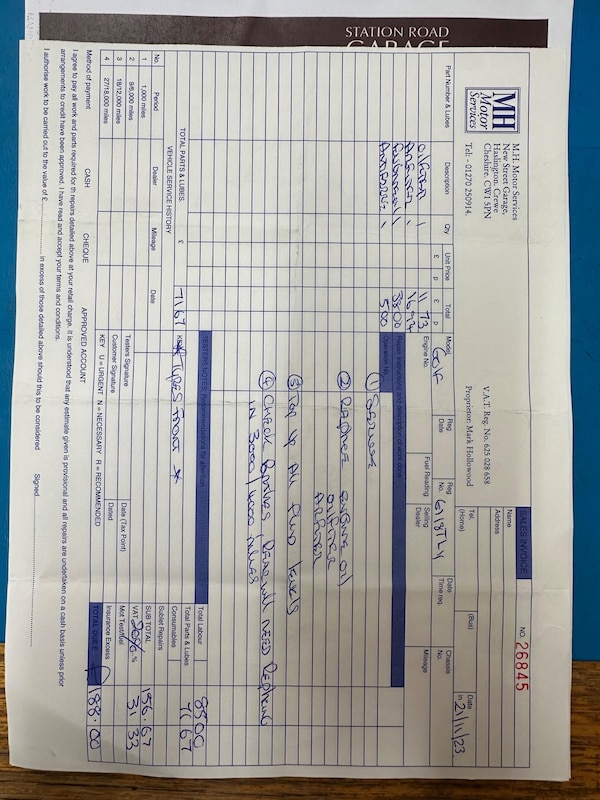 STATION ROAD
GARAGE
MH
Motor
Services
M.H. Motor Services
New Street Garage,
Haslington, Crewe
Cheshire. CW1 5PN
Tel: - 01270 250914.
V.A.T. Reg. No. 625 028 658
Proprietor: Mark Hollowood
SALES INVOICE
NO. 26845
Name
Address
Tel. (Home)
(Bus)
Date in 21/11/23
Part Number & Lubes
Description
Qty
Unit Price
£ p
Total
£ p
Model Golf
Reg Date
Reg No.
Date Time req.
Chassis No.
Engine No.
Fuel Reading
Selling Dealer
Mileage
Oilfilter 1 11 73
Airfilter 1 16 94
38 00
Antifreeze 1 5 00
Repair instructions and description of work done
Operation No.
① Service
② Replace Engine oil
oilfilter
Airfilter
③ Top up All fluid levels
④ Check Brakes, Rear will need Replacing
in 3000/4000 miles
TOTAL PARTS & LUBES. £ 71 67
VEHICLE SERVICE HISTORY
No.
Period
Dealer
Mileage
Date
1 1,000 miles
2 9/6,000 miles
3 18/12,000 miles
4 27/18,000 miles
TESTERS NOTES: Recommendations for attention
KEY
* Tyres Front *
Testers Signature
Customer Signature
Date (Tax Point)
Dated
KEY U = URGENT N = NECESSARY R = RECOMMENDED
Total Labour 85 00
Total Parts & Lubes 71 67
Consumables
Sublet Repairs
SUB TOTAL 156.67
VAT 20% % 31 33
Mot Test/fuel
Insurance Excess
TOTAL DUE £ 188.00
Method of payment CASH CHEQUE APPROVED ACCOUNT
I agree to pay all work and parts required for th repairs detailed above at your retail charge. It is understood that any estimate given is provisional and all repairs are undertaken on a cash basis unless prior
arrangements to credit have been approved. I have read and accept your terms and conditions.
I authorise work to be carried out to the value of £ in excess of those detailed above should this to be considered Signed